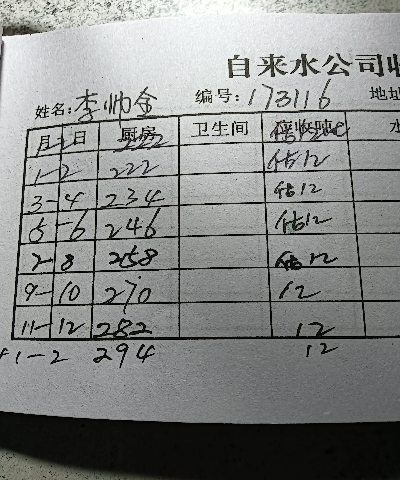 自来水公司收
姓名: 李帅金 编号: 173116 地址
月 日 厨房 卫生间 应收吨 水
1-2 222 估12
3-4 234 估12
5-6 246 估12
7-8 258 估12
9-10 270 12
11-12 282 12
1-2 294 12